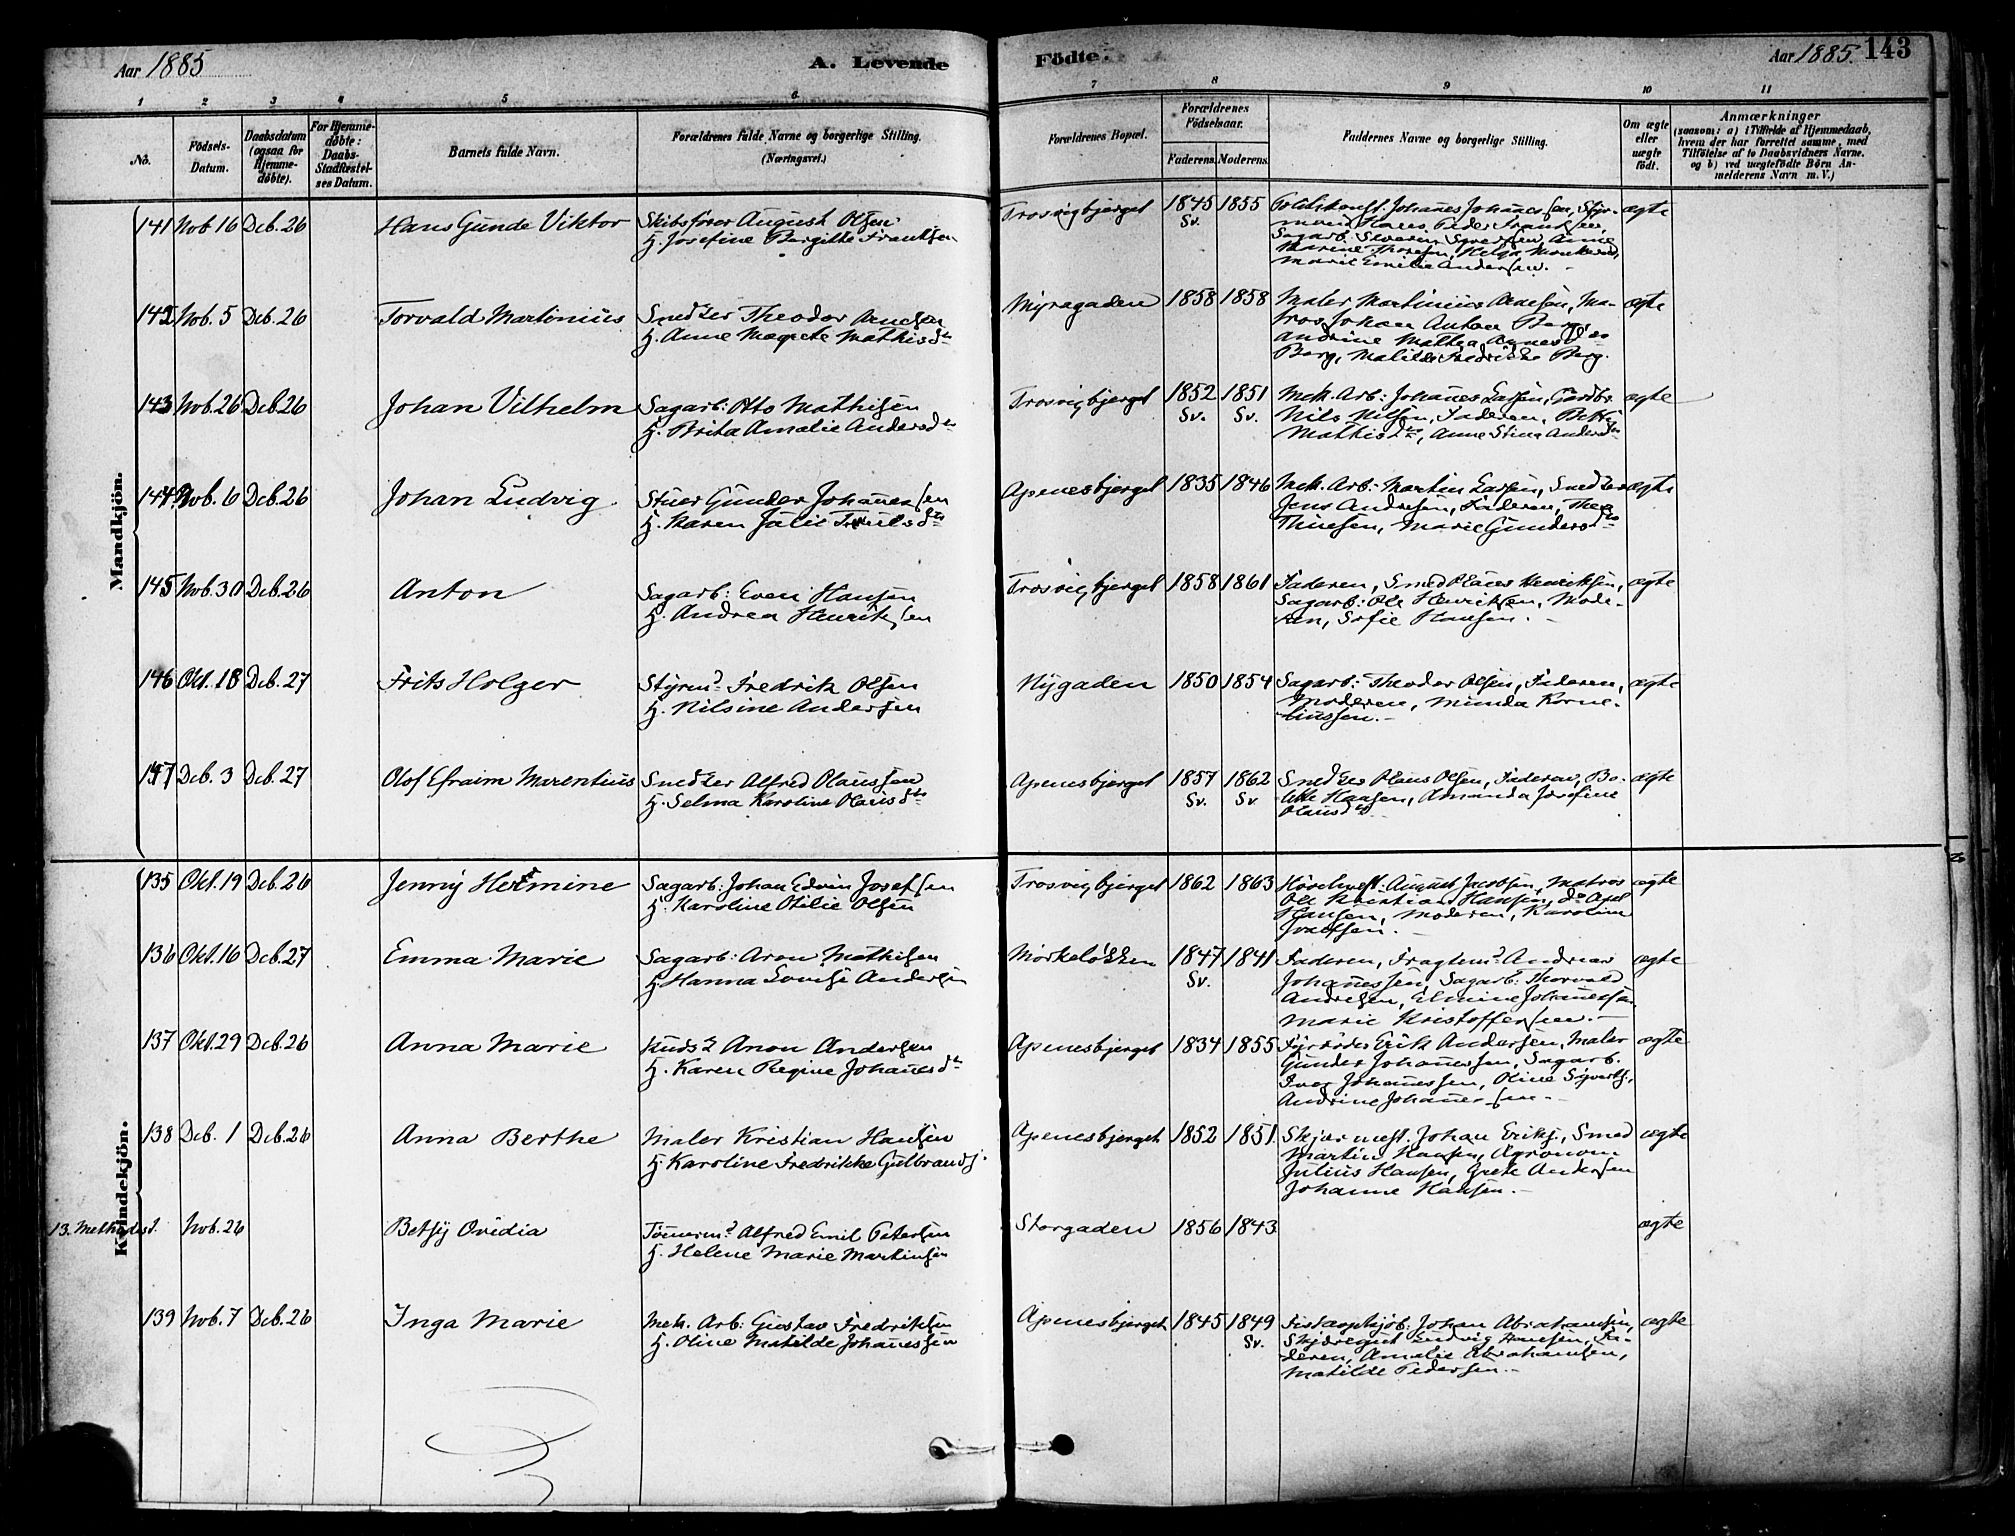 Aar 1885
A. Levende
Födte.
Aar 1885. 143
1 2 3 4 5 6 7 8 9 10 11
No.
Födsels-Datum.
Daabsdatum (ogsaa for Hjemme-döbte).
For Hjemme-döbte: Daabs-Stadfæstel-ses Datum.
Barnets fulde Navn.
Forældrenes fulde Navne og borgerlige Stilling.
(Næringsvei.)
Forældrenes Bopæl.
Forældrenes Födselsaar.
Faderens. Moderens.
Faddernes Navne og borgerlige Stilling.
Om ægte eller uægte födt.
Anmærkninger
(saasom: a) i Tilfælde af Hjemmedaab, hvem der har forrettet samme, med Tilföielse af to Daabsvidners Navne, og b) ved uægtefödte Börn An-melderens Navn m. V.)
Mandkjön.
141 Nov. 16 Dec. 26 Hans Gunde Viktor Skibsfører August Olsen
H. Josefine Bergitte Frantsen
Trosvigbjerget 1845 Sv. 1855
Johanes Johanessen, Styr-
mand Hans Peder Frantsen,
Sagarb: Severin Syversen, Anne
Marine Thoresen, Helga
Marie Emilie Andersen.
ægte
142 Nov. 5 Dec. 26 Torvald Martinius Smed Theodor Arnesen
H. Anne Magrete Mathisdtr
Myragaden 1858 1858
Maler Martinius Arnesen, Ma-
tros Johan Anton Berg,
Andrine Mathea
Berg, Matilde Fredrikke Berg.
ægte
143 Nov. 26 Dec. 26 Johan Vilhelm Sagarb: Otto Mathisen
H. Brita Amalie Andersdtr
Trosvigbjerget 1852 Sv. 1851 Sv.
Mek. Arb: Johanes Larsen, Gardbr.
Nils Nilsen, Faderen,
Mathisdtr, Anne Stina Andersdtr
ægte
144 Nov. 6 Dec. 26 Johan Ludvig Stuer Gunder Johanessen
H. Karen Julie
Apenesbjerget 1835 1846
Mek. Arb: Martin Larsen, Smed
Jens Andresen, Faderen, Thea
Thuesen, Marie Gundersdtr
ægte
145 Nov. 30 Dec. 26 Anton Sagarb: Even Hansen
H. Andrea Henriksen
Trosvigbjerget 1858 1861
Faderen, Smed Olaus Henriksen,
Sagarb: Ole Henriksen, Mode-
ren, Sofie Hansen.
ægte
146 Okt. 18 Dec. 27 Frits Holger Styrmd Fredrik Olsen
H. Nilsine Andersen
Nygaden 1850 1854
Sagarb: Theodor Olsen, Faderen,
Moderen, Minda Korne-
liussen.
ægte
147 Dec. 3 Dec. 27 Olof Efraim Marentius Smed Alfred Olaussen
H. Selma Karoline Olausdtr
Apenesbjerget 1857 Sv. 1862 Sv
Smed Olaus Olsen, Faderen, Bo-
Hansen, Amanda Josefine
Olausdtr
ægte
Kvindekjön.
135 Okt. 19 Dec. 26 Jenny Hermine Sagarb: Johan Edvin Josefsen
H. Karoline Otilie Olsen
Trosvigbjerget 1862 1863
August Jacobsen, Matros
Ole Kristian Hansen, do Axel
Hansen, Moderen, Karoline
Josefsen.
ægte
136 Okt. 16 Dec. 27 Emma Marie Sagarb: Aron Mathisen
H. Hanna Lovise Andersen
Mørkeløkken 1847 Sv. 1841
Faderen, Fragtemd Andreas
Johanessen, Sagarb: Thorvald
Andresen, Elmine Johanessen
Marie Kristoffersen.
ægte
137 Okt. 29 Dec. 26 Anna Marie Anon Andersen
H. Karen Regine Johanesdtr
Apenesbjerget 1834 1855
Fyrbøder Erik Andersen, Maler
Gunder Johanessen, Sagarb.
Ivar Johanessen, Oline Syverts.,
Andrine Johanessen.
ægte
138 Dec. 1 Dec. 26 Anna Berthe Maler Kristian Hansen
H. Karoline Fredrikke Gulbrands.
Apenesbjerget 1852 1851
Skjærmest. Johan Eriks., Smed
Martin Hansen, Agronom
Julius Hansen, Grete Andersen
Johanne Hansen.
ægte
13. Methodist. Nov. 26 Betsy Ovidia Tømermd Alfred Emil Petersen
H. Helene Marie Martinsen
Storgaden 1856 1843
ægte
139 Nov. 7 Dec. 26 Inga Marie Mek. Arb: Gustav Fredriksen
H. Oline Matilde Johanessen
Apenesbjerget 1845 1849 Sv.
Johan Abrahamsen,
Skjæregut Ludvig Hansen, Fa-
deren, Amalie Abrahamsen,
Matilde Pedersen.
ægte